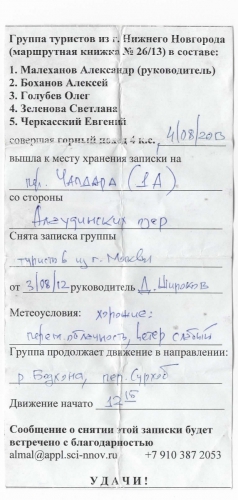 Группа туристов из г. Нижнего Новгорода
(маршрутная книжка № 26/13) в составе:
1. Малеханов Александр (руководитель)
2. Боханов Алексей
3. Голубев Олег
4. Зеленова Светлана
5. Черкасский Евгений
совершая горный поход 4 к.с., 4/08/2013
вышла к месту хранения записки на
пер. Чапдара (1А)
со стороны
Алаудинских озер
Снята записка группы
туристов из г. Москвы
от 3/08/12 руководитель Д. Широков
Метеоусловия: хорошие:
перем. облачность, ветер слабый
Группа продолжает движение в направлении:
р. пер.
Движение начато 12 15
Сообщение о снятии этой записки будет
встречено с благодарностью
almal@appl.sci-nnov.ru +7 910 387 2053
УДАЧИ!